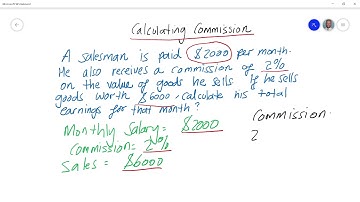 Calculating Commission
A salesman is paid $2000 per month.
He also receives a commission of 2%
on the value of goods he sells If he sells
goods worth $6000, calculate his total
earnings for that month?
Monthly Salary = $2000
Commission = 2%
Sales = $6000
Commission
2